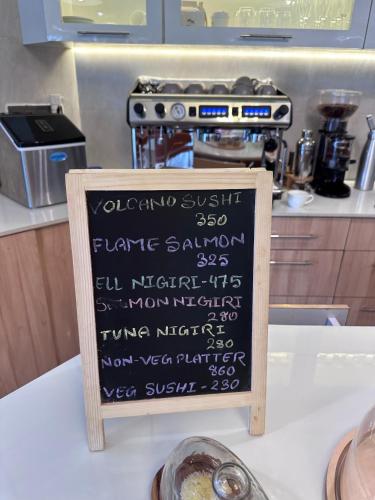 VOLCANO SUSHI
350
FLAME SALMON
325
ELL NIGIRI-475
SALMON NIGIRI
280
TUNA NIGIRI
280
NON-VEG PLATTER
860
VEG SUSHI-230